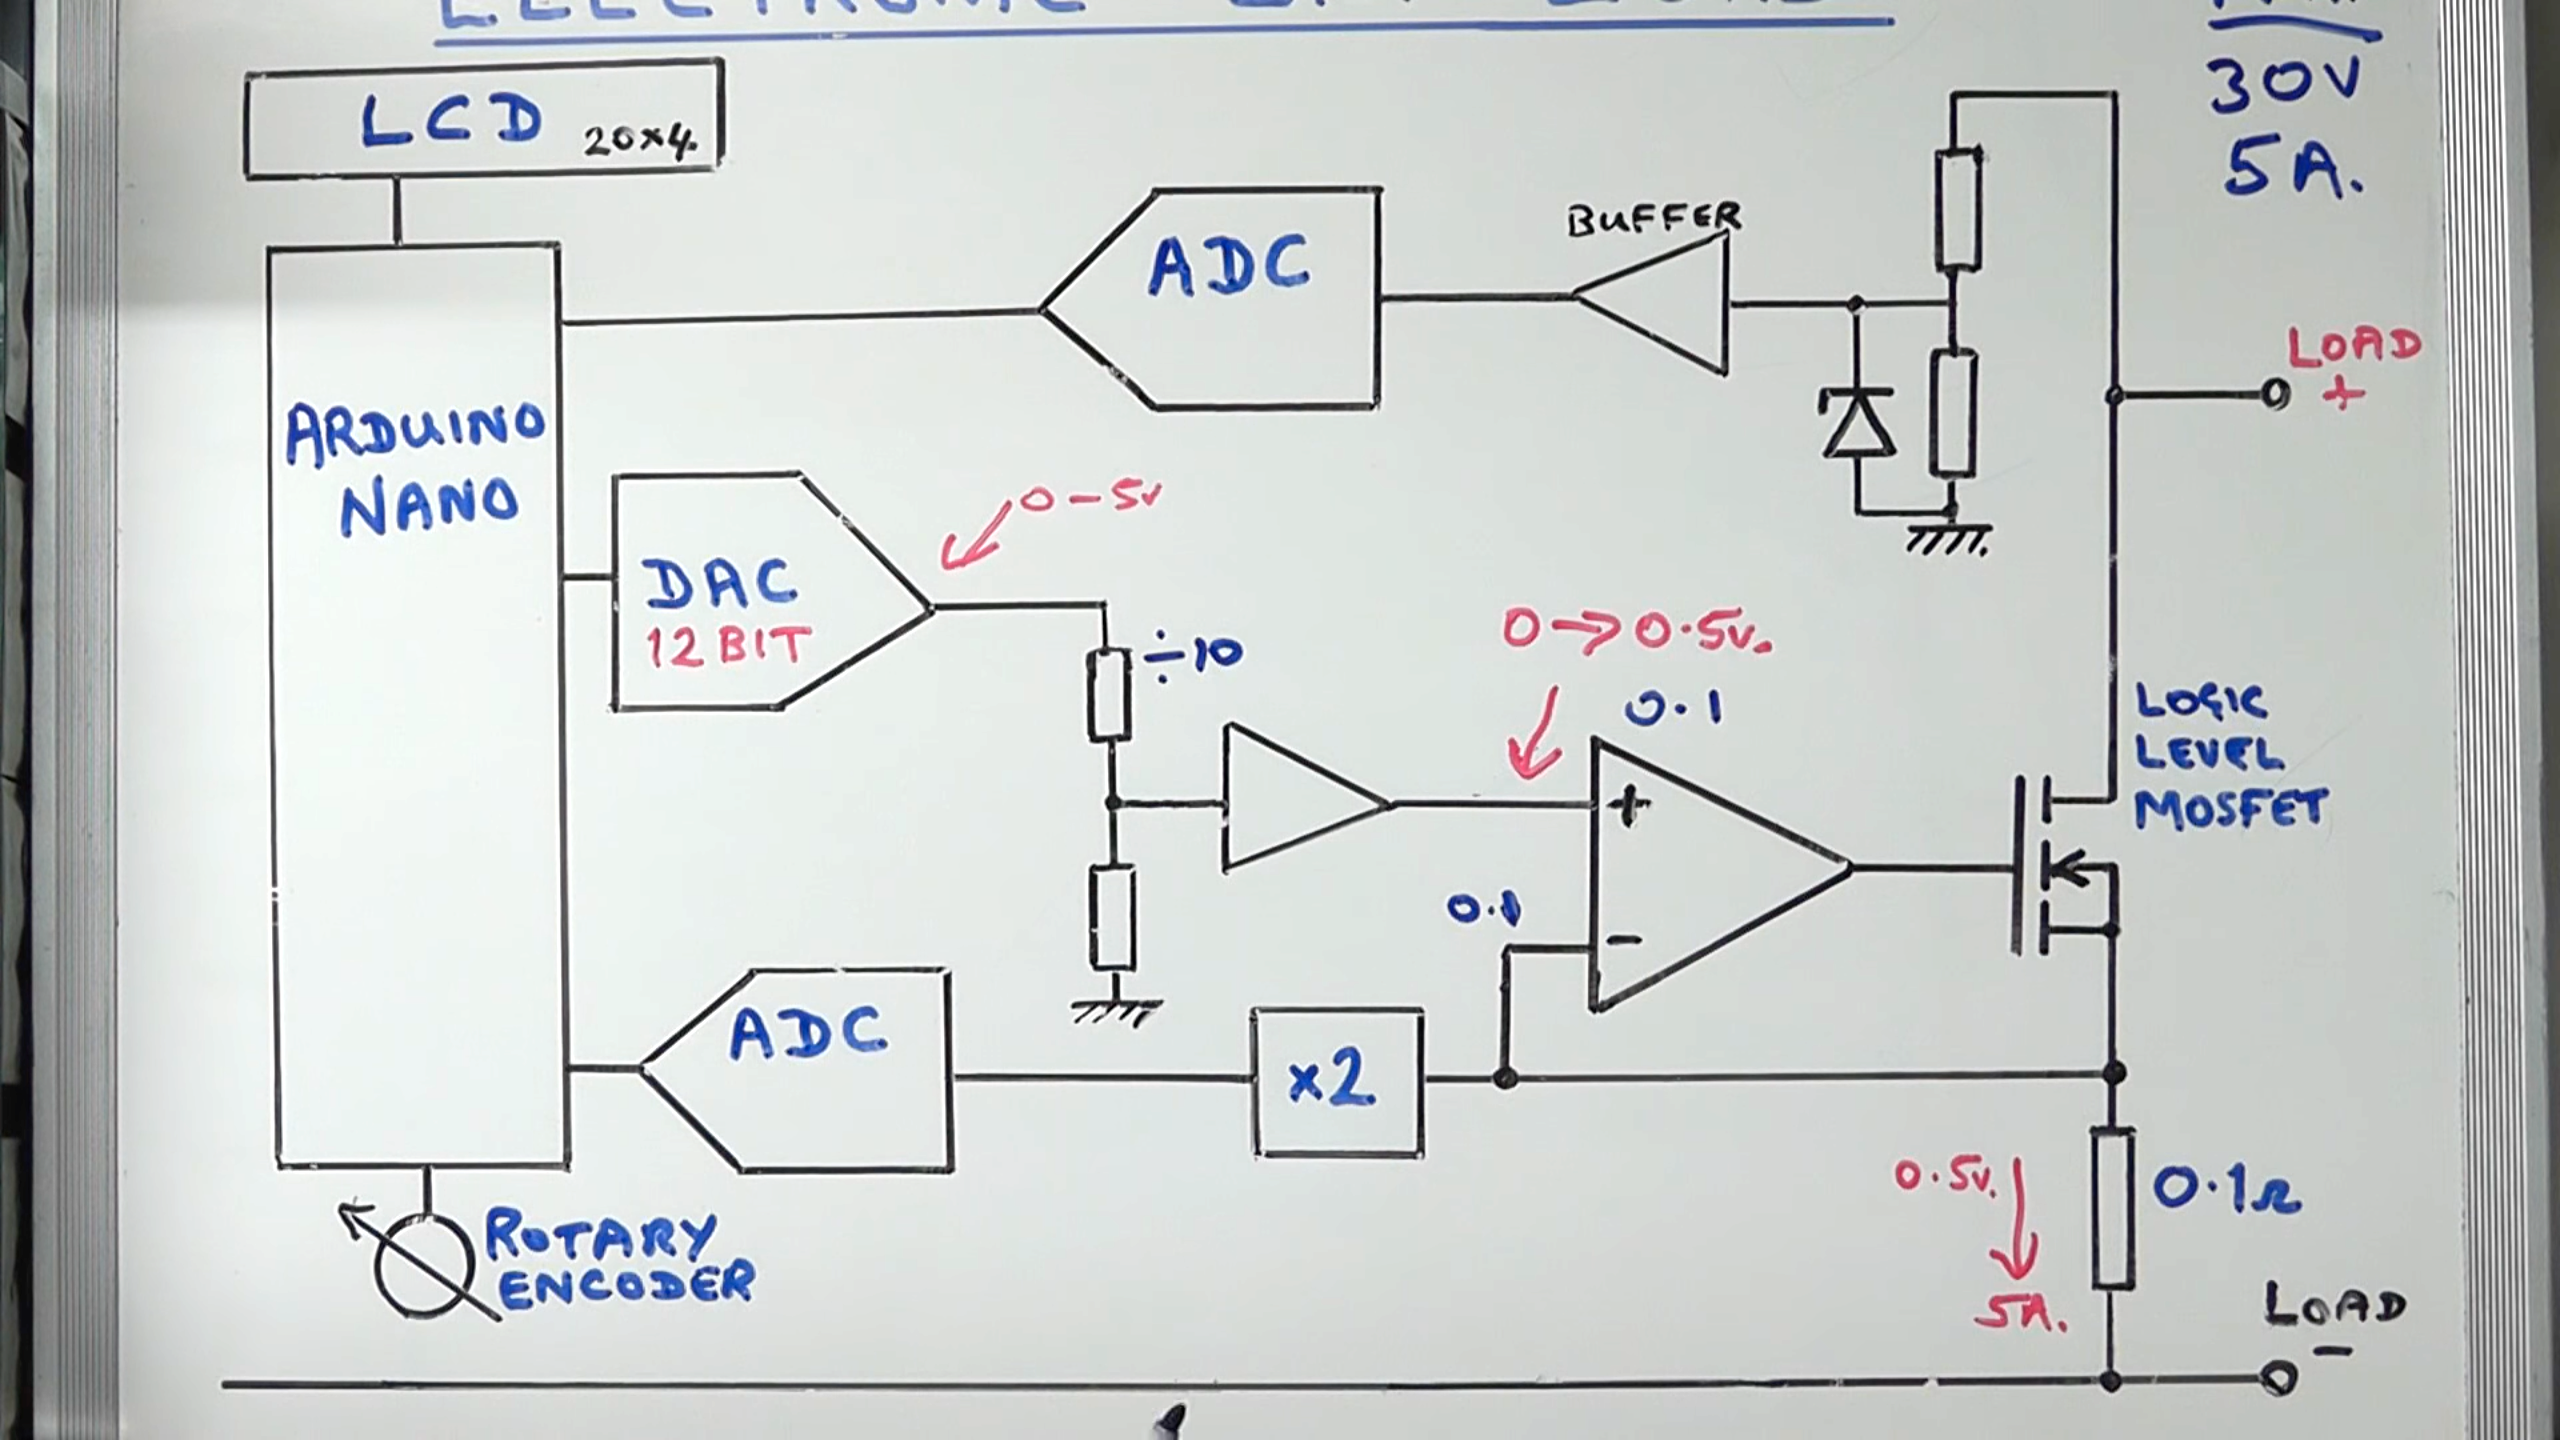 ELECTRONIC
30V
5A.
LCD 20x4.
BUFFER
ADC
LOAD
+
ARDUINO
NANO
0-5v
DAC
12 BIT
÷10
0→0.5v.
0.1
LOGIC
LEVEL
MOSFET
+
0.1
-
ADC
x2
0.5v.
0.1Ω
5A.
ROTARY
ENCODER
LOAD
-